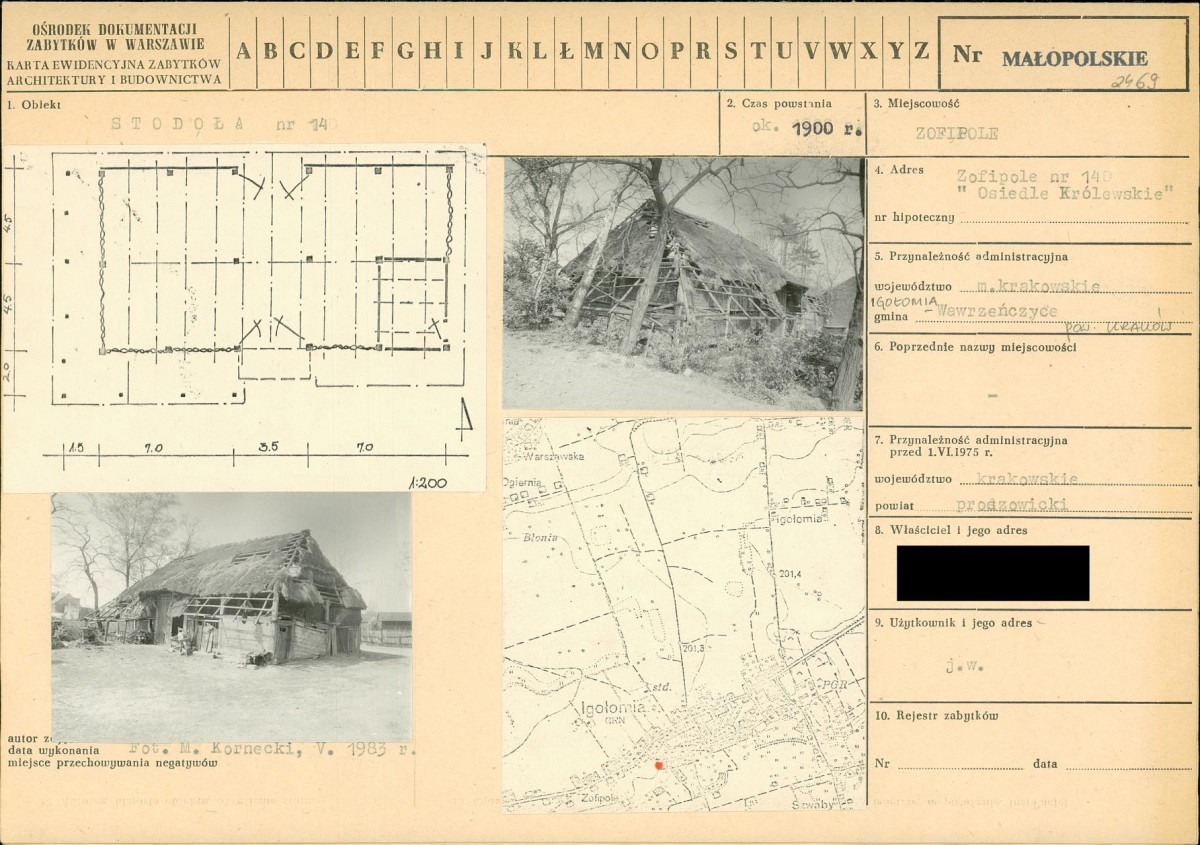 OŚRODEK DOKUMENTACJI
ZABYTKÓW W WARSZAWIE
KARTA EWIDENCYJNA ZABYTKÓW
ARCHITEKTURY I BUDOWNICTWA
A B C D E F G H I J K L Ł M N O P R S T U V W X Y Z
Nr MAŁOPOLSKIE
2469
1. Obiekt
STODOŁA nr 140
2. Czas powstania
ok. 1900 r.
3. Miejscowość
ZOFIPOLE
4. Adres
Zofipole nr 140
" Osiedle Królewskie"
nr hipoteczny
5. Przynależność administracyjna
województwo m.krakowskie
IGOŁOMIA
gmina - Wawrzeńczyce
pow. KRAKÓW
6. Poprzednie nazwy miejscowości
-
7. Przynależność administracyjna
przed 1.VI.1975 r.
województwo krakowskie
powiat proszowicki
8. Właściciel i jego adres
9. Użytkownik i jego adres
j.w.
10. Rejestr zabytków
Nr data
4.5
4.5
2.0
1.5 7.0 3.5 7.0
1:200
Warszawska
Ogiernia
Igołomia
Błonia
201,4
201,3
std.
PGR
Igołomia
GRN
Zofipole
Szwaby
autor
data wykonania Fot. M. Kornecki, V. 1983 r.
miejsce przechowywania negatywów